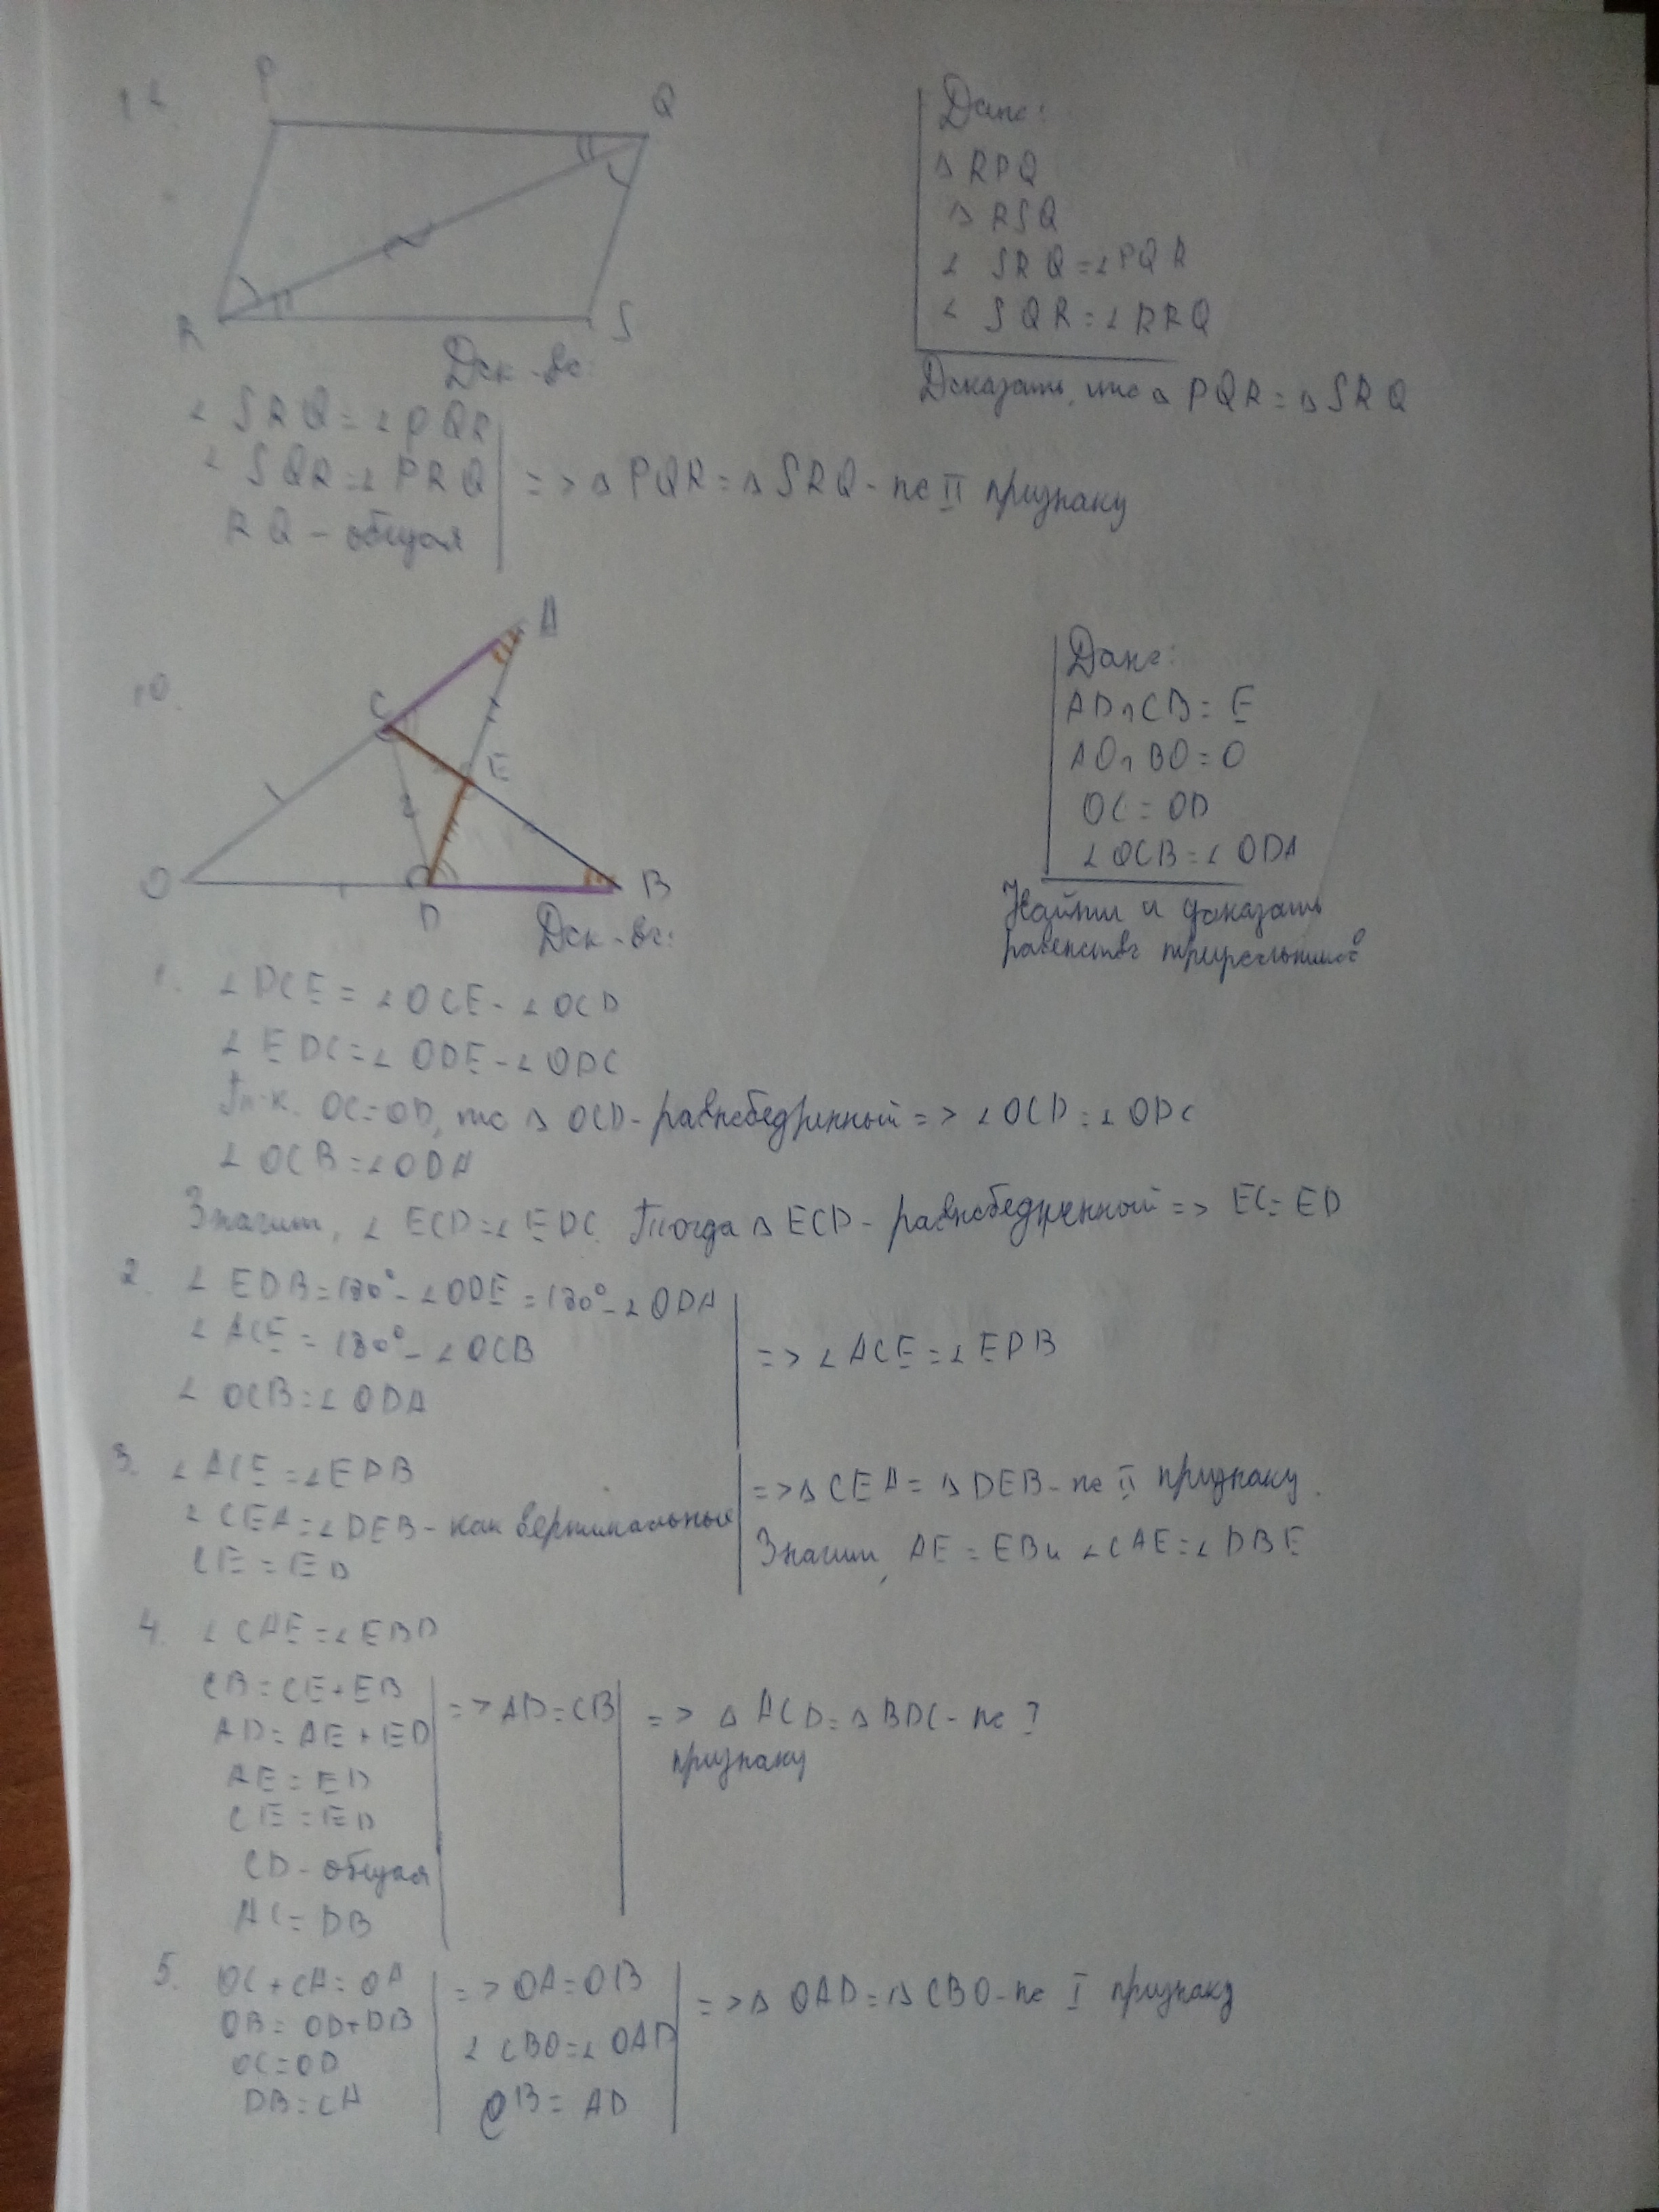 P
Q
R
S
Дано:
Δ RPQ
Δ RSQ
∠ SRQ = ∠ PQR
∠ SQR = ∠ PRQ
Доказать, что Δ PQR = Δ SRQ
Док-во:
∠ SRQ = ∠ PQR
∠ SQR = ∠ PRQ
RQ - общая
=> Δ PQR = Δ SRQ - по II признаку
10.
A
C
E
O
D
B
Дано:
AD ∩ CB = E
AO ∩ BO = O
OC = OD
∠ OCB = ∠ ODA
Найти и доказать
равенство треугольников
Док-во:
1. ∠ DCE = ∠ OCE - ∠ OCD
∠ EDC = ∠ ODE - ∠ ODC
Т.к. OC = OD, то Δ OCD - равнобедренный => ∠ OCD = ∠ ODC
∠ OCB = ∠ ODA
Значит, ∠ ECD = ∠ EDC. Тогда Δ ECD - равнобедренный => EC = ED
2. ∠ EDB = 180° - ∠ ODE = 180° - ∠ ODA
∠ ACE = 180° - ∠ OCB
∠ OCB = ∠ ODA
=> ∠ ACE = ∠ EDB
3. ∠ ACE = ∠ EDB
∠ CEA = ∠ DEB - как вертикальные
CE = ED
=> Δ CEA = Δ DEB - по II признаку.
Значит, AE = EB и ∠ CAE = ∠ DBE
4. ∠ CAE = ∠ EBD
CB = CE + EB
AD = AE + ED
AE = ED
CE = ED
CD - общая
AC = DB
=> AD = CB
=> Δ ACD = Δ BDC - по ?
признаку
5. OC + CA = OA
OB = OD + DB
OC = OD
DB = CA
=> OA = OB
∠ CBO = ∠ OAD
CB = AD
=> Δ OAD = Δ CBO - по I признаку